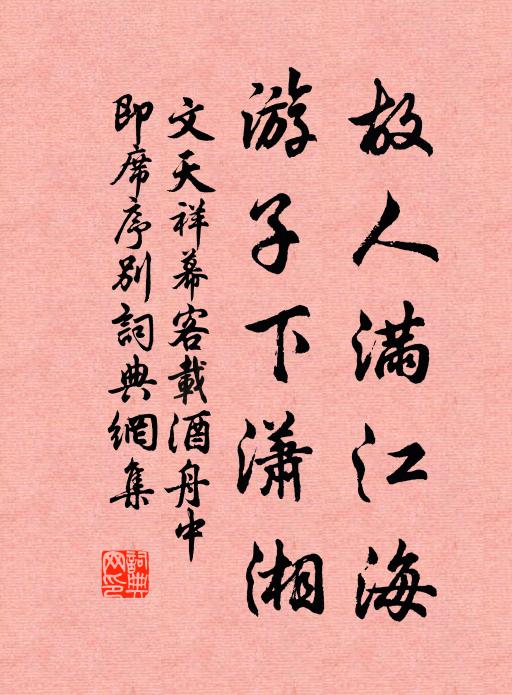 故人满江海
游子下潇湘
文天祥幕客載酒舟中
即席序别詞典網集
詞典網印